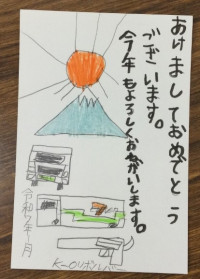 あけましておめでとう
ございます。
今年もよろしくおねがいします。
令和7年1月